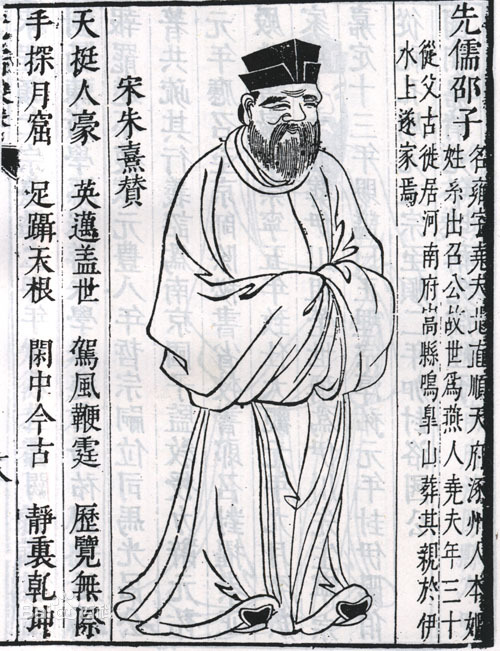 先儒邵子
名雍字堯夫直順天府涿州人本姬
姓系出召公故世爲燕人堯夫年三十
從父古徙居河南府嵩縣鳴皐山葬其親於伊
水上遂家焉
宋朱熹賛
天挺人豪 英邁盖世 駕風鞭霆 歷覽無際
手探月窟 足躡天根 閑中今古 靜裏乾坤